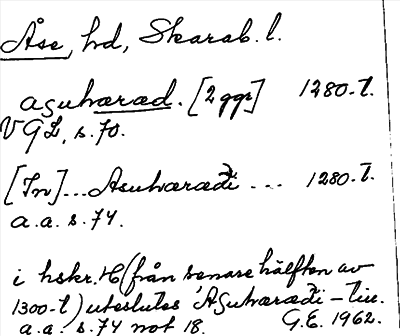 Åse, hd, Skarab. l.
asuhæræd. [2 ggr] 1280-t.
VGL, s. 70.
[In]...Asuhæræði ... 1280-t.
a.a. s. 74.
i hskr. H (från senare hälften av
1300-t) uteslutes 'Asuhæræði – tiu.
a.a. s. 74 not 18. G.E. 1962.